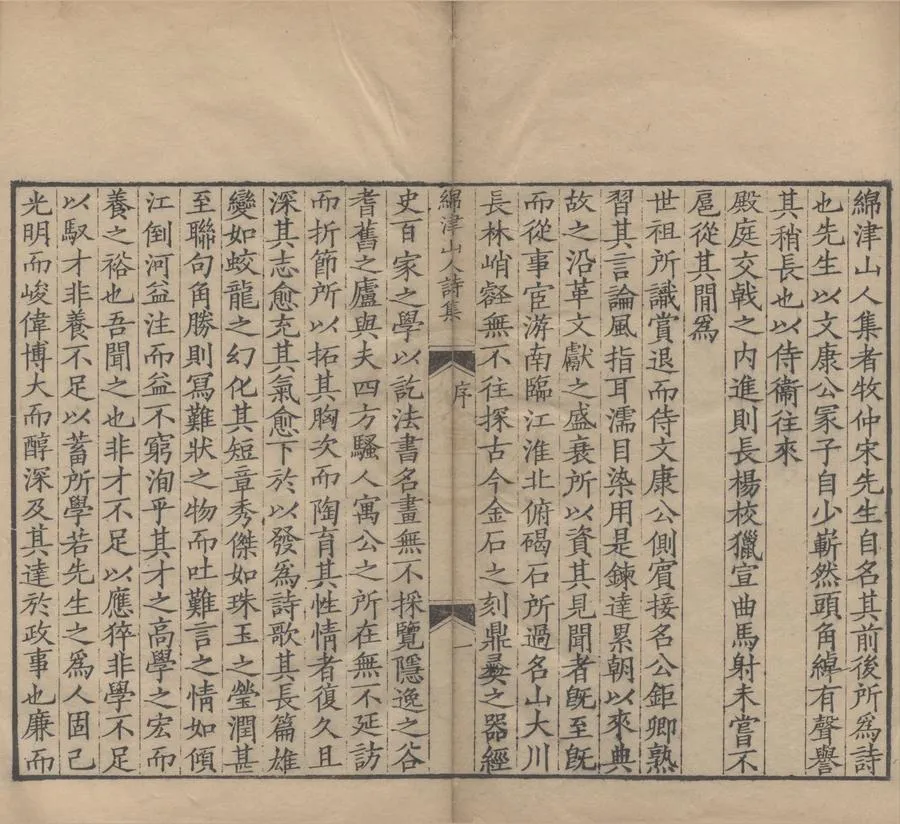 綿津山人集者牧仲宋先生自名其前後所爲詩
也先生以文康公冢子自少嶄然頭角綽有聲譽
其稍長也以侍衞往來
殿庭交戟之內進則長楊校獵宣曲馬射未嘗不
扈從其閒爲
世祖所識賞退而侍文康公側賓接名公鉅卿熟
習其言論風指耳濡目染用是鍊達累朝以來典
故之沿革文獻之盛衰所以資其見聞者旣至旣
而從事宦游南臨江淮北俯碣石所過名山大川
長林峭壑無不往探古今金石之刻鼎彝之器經
綿津山人詩集
序
一
史百家之學以訖法書名畫無不採覽隱逸之谷
耆舊之廬與夫四方騷人寓公之所在無不延訪
而折節所以拓其胸次而陶育其性情者復久且
深其志愈充其氣愈下於以發爲詩歌其長篇雄
變如蛟龍之幻化其短章秀傑如珠玉之瑩潤甚
至聯句角勝則冩難狀之物而吐難言之情如傾
江倒河益注而益不窮洵乎其才之高學之宏而
養之裕也吾聞之也非才不足以應猝非學不足
以馭才非養不足以蓄所學若先生之爲人固已
光明而峻偉博大而醇深及其達於政事也廉而